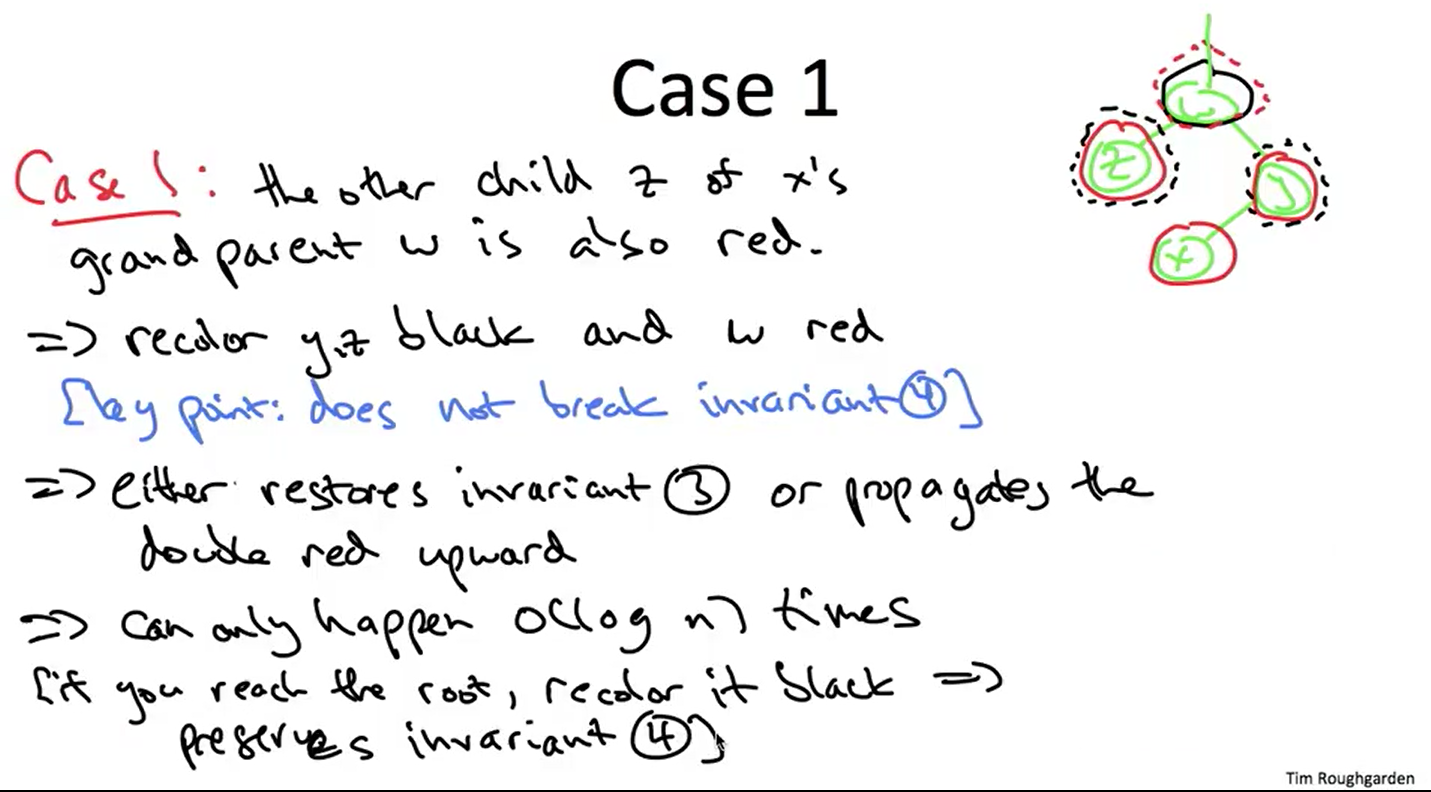 Case 1
Case 1: the other child z of x's
grandparent w is also red.
=> recolor y,z black and w red
[key point: does not break invariant ④]
=> either restores invariant ③ or propagates the
double red upward
=> can only happen O(log n) times
[if you reach the root, recolor it black =>
preserves invariant ④]
w
z
y
x
Tim Roughgarden